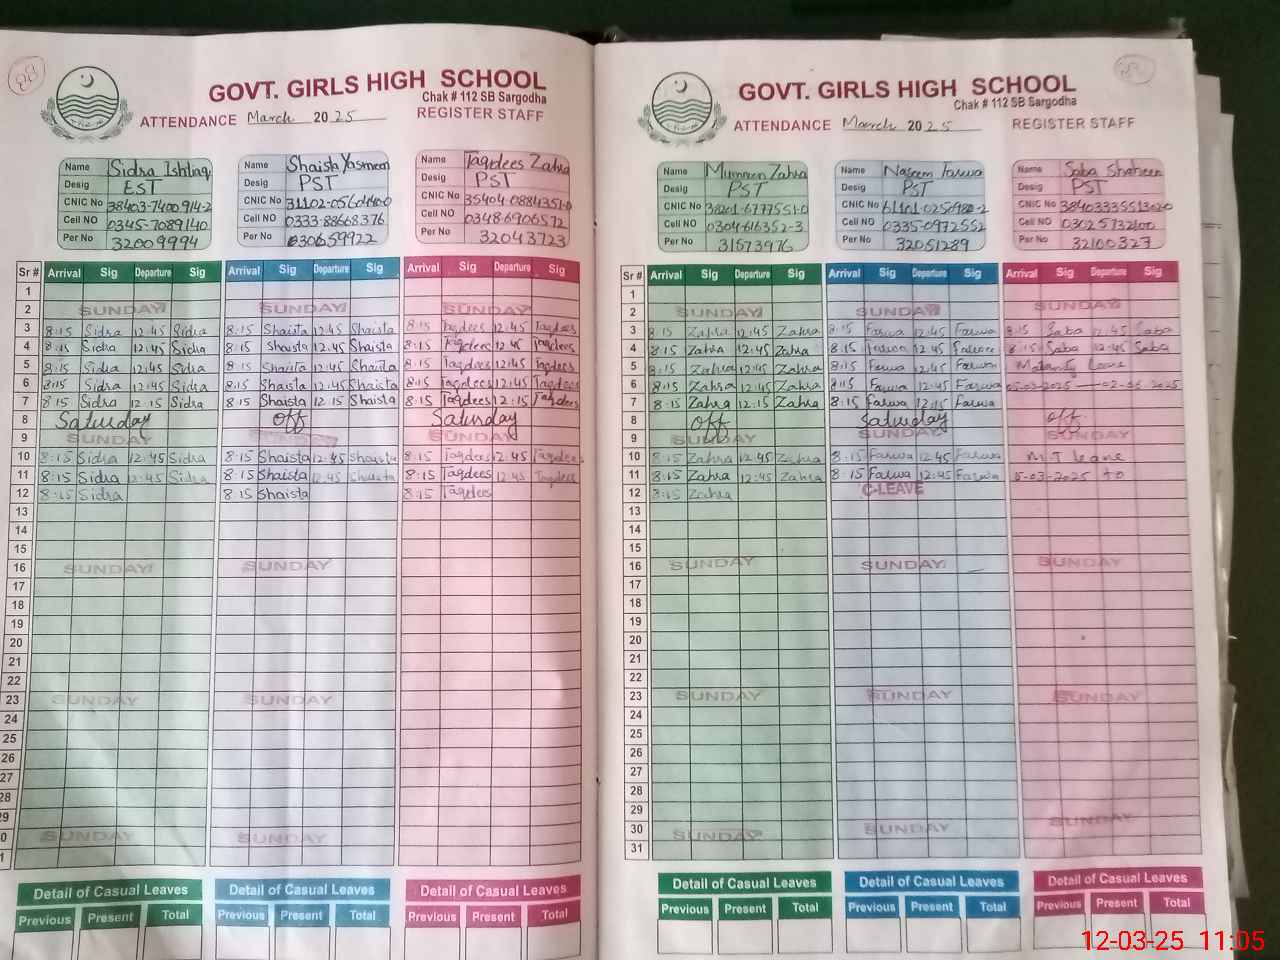 GOVT. GIRLS HIGH SCHOOL
Chak # 112 SB Sargodha
ATTENDANCE March 2025 REGISTER STAFF
Name Sidra Ishtiaq
Desig EST
CNIC No 38403-7400914-2
Cell NO 0345-7089140
Per No 32009994
Name Shaista Yasmeen
Desig PST
CNIC No
Cell NO 0333-88668376
Per No 030659922
Name Taqdees Zahra
Desig PST
CNIC No
Cell NO 03486906572
Per No 32043723
Sr # Arrival Sig Departure Sig Arrival Sig Departure Sig Arrival Sig Departure Sig
1
2 SUNDAY SUNDAY SUNDAY
3 8:15 Sidra 12:45 Sidra 8:15 Shaista 12:45 Shaista 8:15 Taqdees 12:45 Taqdees
4 8:15 Sidra 12:45 Sidra 8:15 Shaista 12:45 Shaista 8:15 Taqdees 12:45 Taqdees
5 8:15 Sidra 12:45 Sidra 8:15 Shaista 12:45 Shaista 8:15 Taqdees 12:45 Taqdees
6 8:15 Sidra 12:45 Sidra 8:15 Shaista 12:45 Shaista 8:15 Taqdees 12:45 Taqdees
7 8:15 Sidra 12:15 Sidra 8:15 Shaista 12:15 Shaista 8:15 Taqdees 12:15 Taqdees
8 Saturday off Saturday
9 SUNDAY SUNDAY SUNDAY
10 8:15 Sidra 12:45 Sidra 8:15 Shaista 12:45 Shaista 8:15 Taqdees 12:45 Taqdees
11 8:15 Sidra 12:45 Sidra 8:15 Shaista 12:45 Shaista 8:15 Taqdees 12:45 Taqdees
12 8:15 Sidra 8:15 Shaista 8:15 Taqdees
13
14
15
16 SUNDAY SUNDAY
17
18
19
20
21
22
23 SUNDAY SUNDAY
24
25
26
27
28
29
0 SUNDAY SUNDAY
1
Detail of Casual Leaves Detail of Casual Leaves Detail of Casual Leaves
Previous Present Total Previous Present Total Previous Present Total
GOVT. GIRLS HIGH SCHOOL
Chak # 112 SB Sargodha
ATTENDANCE March 2025 REGISTER STAFF
Name Mumneen Zahra
Desig PST
CNIC No 38201-6777551-0
Cell NO 0304-616352-3
Per No 31673976
Name Naseem Farwa
Desig PST
CNIC No
Cell NO 0335-0972552
Per No 32051289
Name Saba Shaheen
Desig PST
CNIC No
Cell NO 03025732100
Per No 32100327
Sr # Arrival Sig Departure Sig Arrival Sig Departure Sig Arrival Sig Departure Sig
1
2 SUNDAY SUNDAY SUNDAY
3 8:15 Zahra 12:45 Zahra 8:15 Farwa 12:45 Farwa 8:15 Saba 12:45 Saba
4 8:15 Zahra 12:45 Zahra 8:15 Farwa 12:45 Farwa 8:15 Saba 12:45 Saba
5 8:15 Zahra 12:45 Zahra 8:15 Farwa 12:45 Farwa Maternity leave
6 8:15 Zahra 12:45 Zahra 8:15 Farwa 12:45 Farwa 05-03-2025
7 8:15 Zahra 12:15 Zahra 8:15 Farwa 12:15 Farwa
8 off Saturday off
9 SUNDAY SUNDAY SUNDAY
10 8:15 Zahra 12:45 Zahra 8:15 Farwa 12:45 Farwa M.T leave
11 8:15 Zahra 12:45 Zahra 8:15 Farwa 12:45 Farwa 5-03-2025 to
12 8:15 Zahra C-LEAVE
13
14
15
16 SUNDAY SUNDAY SUNDAY
17
18
19
20
21
22
23 SUNDAY SUNDAY SUNDAY
24
25
26
27
28
29
30 SUNDAY SUNDAY SUNDAY
31
Detail of Casual Leaves Detail of Casual Leaves Detail of Casual Leaves
Previous Present Total Previous Present Total Previous Present Total
12-03-25 11:05